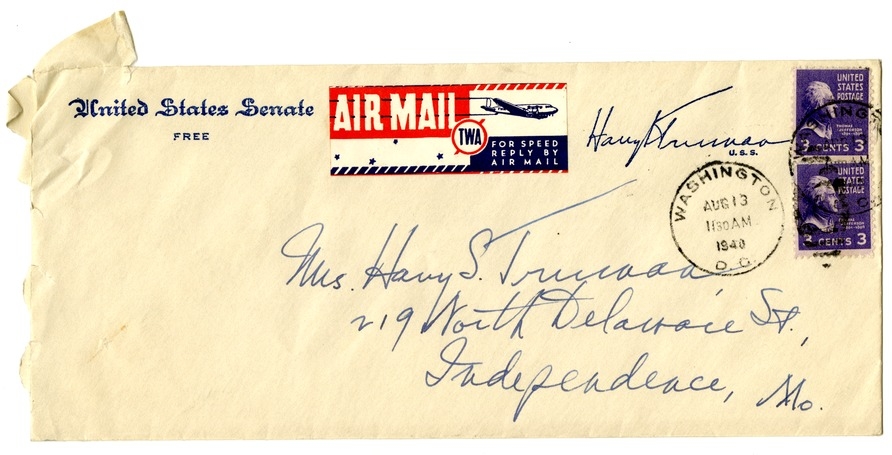 United States Senate
FREE
AIR MAIL
TWA
FOR SPEED
REPLY BY
AIR MAIL
Harry S Truman
U.S.S.
UNITED
STATES
POSTAGE
THOMAS
JEFFERSON
3 CENTS 3
UNITED
STATES
POSTAGE
3 CENTS 3
WASHINGTON
AUG 13
1130 AM
1940
D.C.
Mrs. Harry S. Truman
219 North Delaware St.,
Independence, Mo.